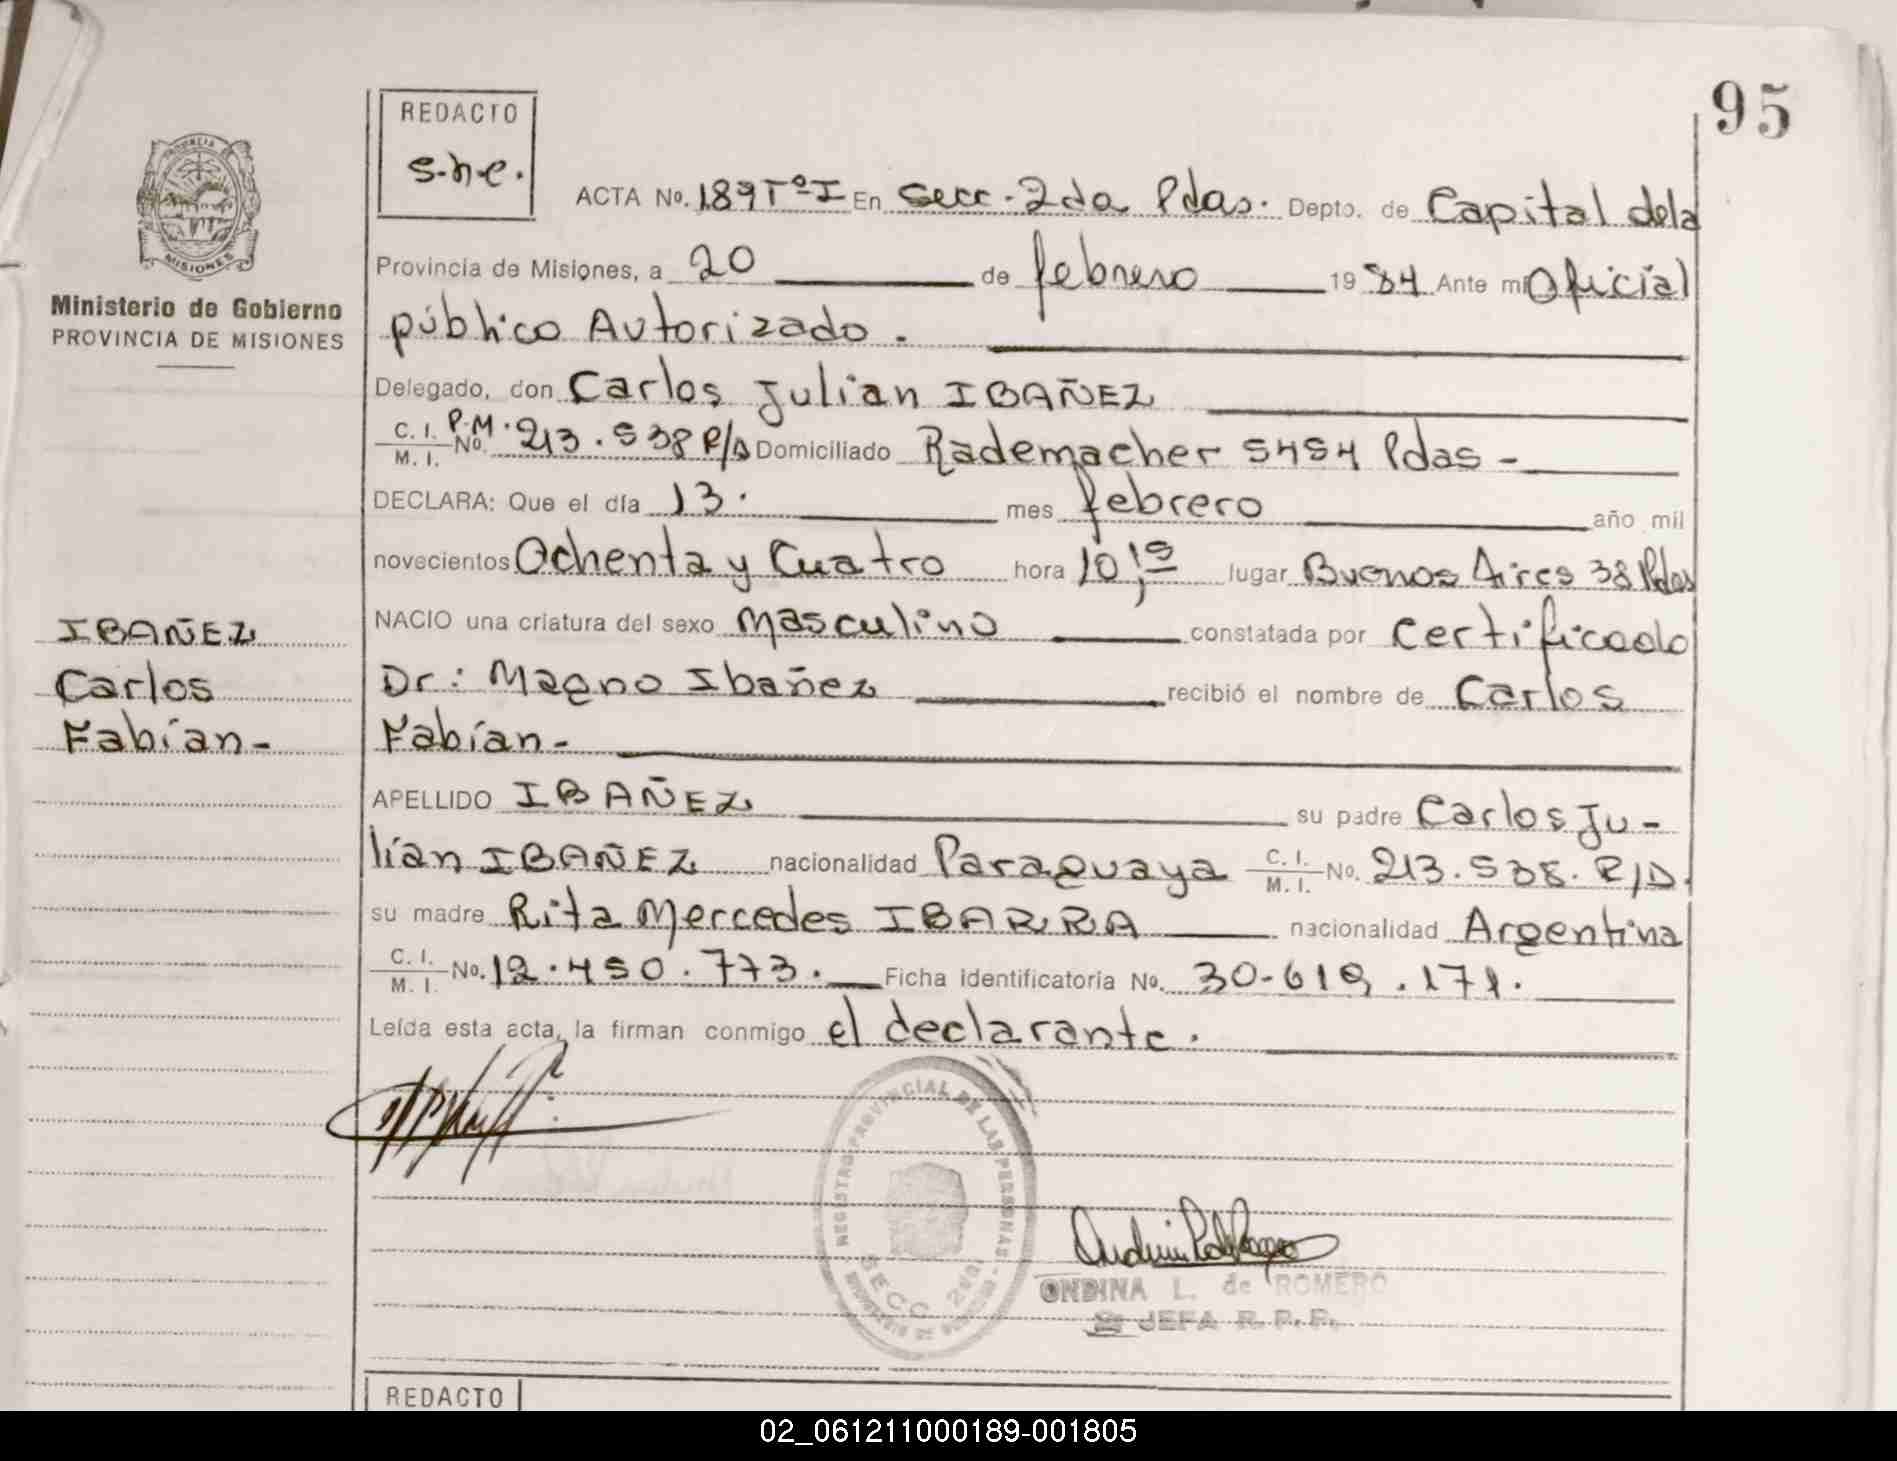 95
REDACTO
s.n.e.
PROVINCIA DE
MISIONES
Ministerio de Gobierno
PROVINCIA DE MISIONES
ACTA No. 189 Tº I En Secc. 2da Pdas. Depto. de Capital de la
Provincia de Misiones, a 20 de febrero 1984 Ante mi Oficial
público Autorizado.
Delegado, don Carlos Julian IBAÑEZ
C. I. M. I. No. P.M. 213.538 R/D Domiciliado Rademacher 5454 Pdas -
DECLARA: Que el día 13. mes febrero año mil
novecientos Ochenta y Cuatro hora 10,15 lugar Buenos Aires 38 Pdas
NACIO una criatura del sexo masculino constatada por Certificado
Dr: Magno Ibañez recibió el nombre de Carlos
Fabían-
IBAÑEZ
Carlos
Fabían-
APELLIDO IBAÑEZ su padre Carlos Ju-
lían IBAÑEZ nacionalidad Paraguaya C. I. M. I. No. 213.538. R/D.
su madre Rita Mercedes IBARRA nacionalidad Argentina
C. I. M. I. No. 12.450.773. Ficha identificatoria No. 30-619.171.
Leída esta acta, la firman conmigo el declarante.
REGISTRO PROVINCIAL DE LAS PERSONAS
SECC 2da
ONDINA L. de ROMERO
JEFA R. P. P.
REDACTO
02_061211000189-001805